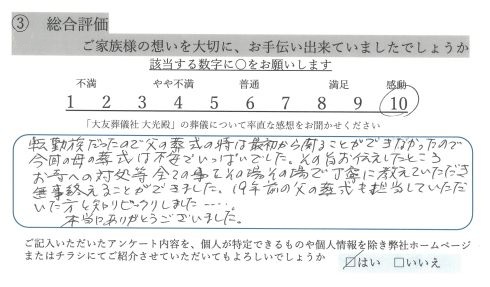 ③ 総合評価
ご家族様の想いを大切に、お手伝い出来ていましたでしょうか
該当する数字に○をお願いします
不満 やや不満 普通 満足 感動
1 2 3 4 5 6 7 8 9 10
「大友葬儀社 大光殿」の葬儀について率直な感想をお聞かせください
転勤族だったので父の葬式の時は最初から関ることができなかったので
今回の母の葬式は不安でいっぱいでした。その旨お伝えしたところ
お寺への対処等全ての事をその場その場で丁寧に教えていただき
無事終えることができました。19年前の父の葬式も担当していただ
いた方と知りビックリしました……。
本当にありがとうございました。
ご記入いただいたアンケート内容を、個人が特定できるものや個人情報を除き弊社ホームページ
またはチラシにてご紹介させていただいてもよろしいでしょうか
□はい □いいえ